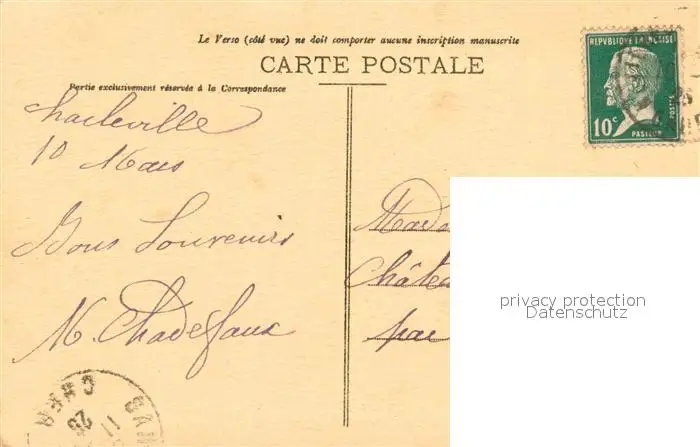 Le Verso (côté vue) ne doit comporter aucune inscription manuscrite
CARTE POSTALE
Partie exclusivement réservée à la Correspondance
REPUBLIQUE FRANÇAISE
10c
POSTES
PASTEUR
Charleville
10 Mars
Bons Souvenirs
M. Chadefaux
Mada
Châtea
par
privacy protection
Datenschutz
11